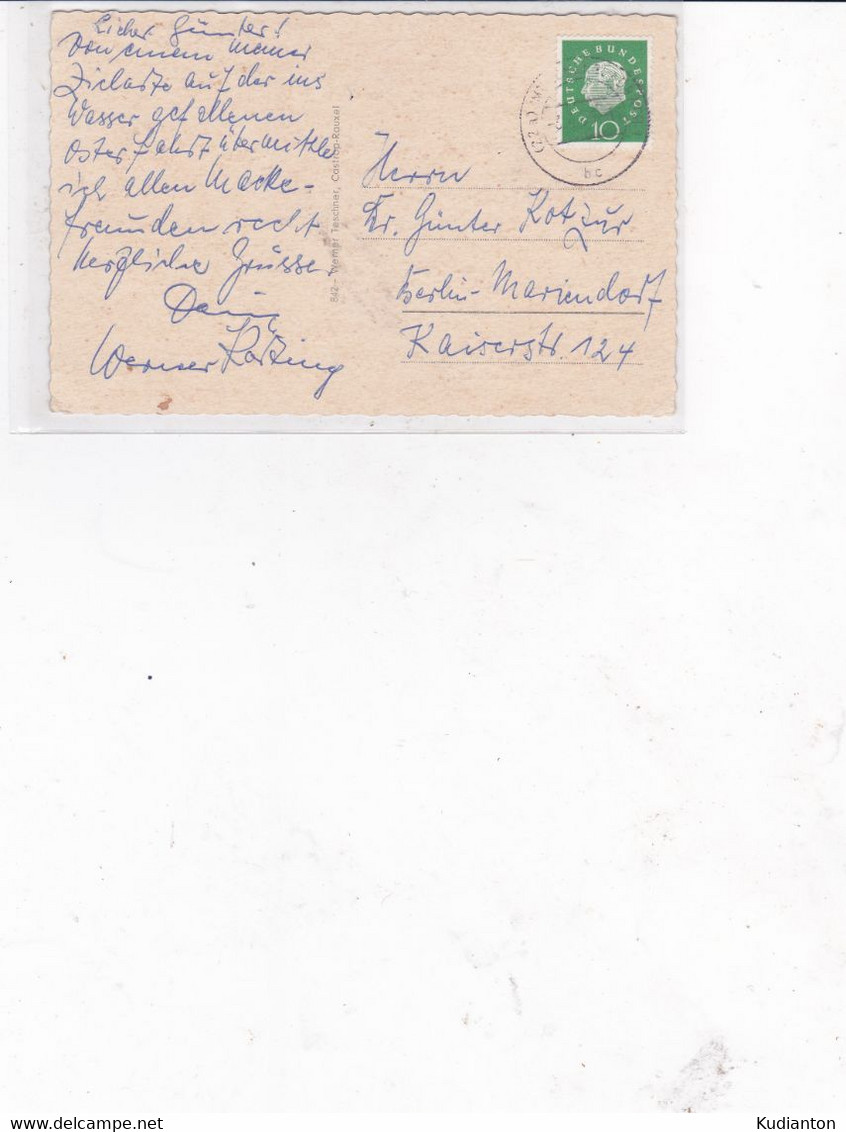 Lieber Günter!
Von einem meiner
Zielorte auf der ins
Wasser gefallenen
Osterfahrt übermittle
ich allen Marke-
freunden recht
herzliche Grüsse.
Dein
Werner
842 - Werner Taschner, Castrop-Rauxel
DEUTSCHE BUNDESPOST
10
(22a)
bc
Herrn
Dr. Günter Kotzur
Berlin-Mariendorf
Kaiserstr. 124
Kudianton